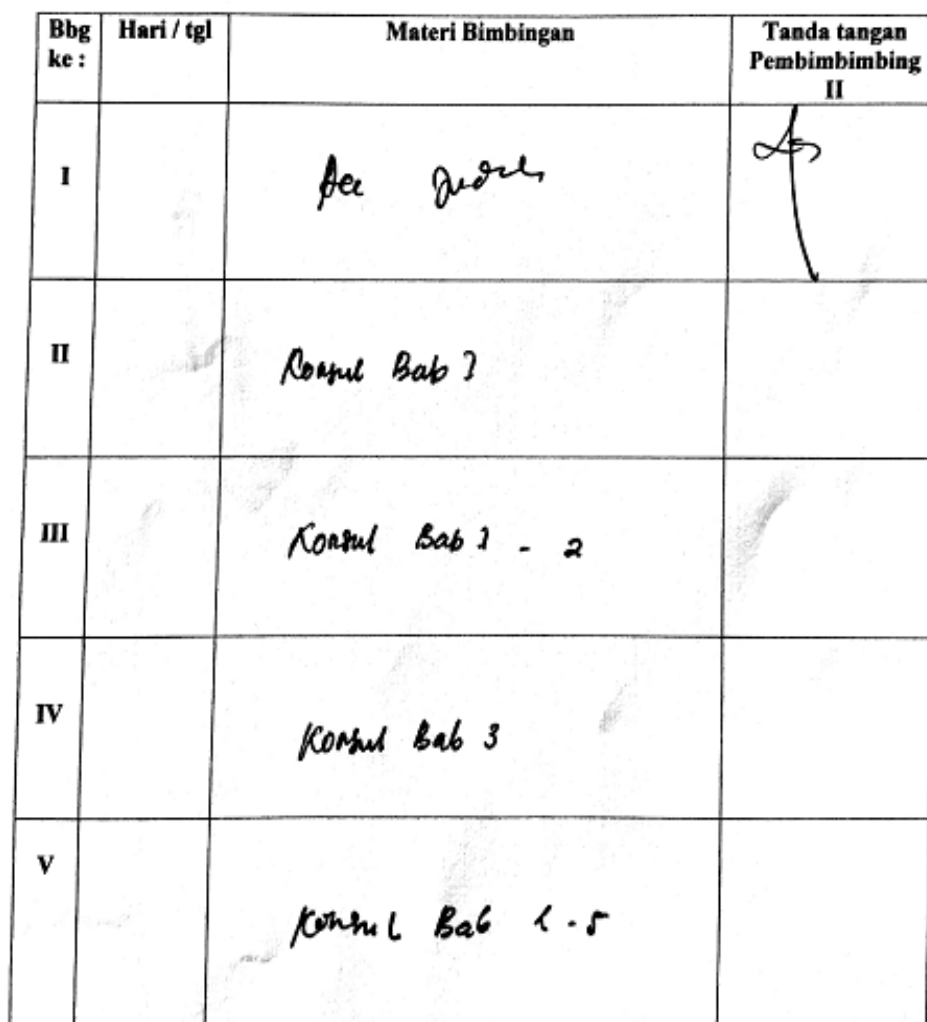 Bbg ke : Hari / tgl Materi Bimbingan Tanda tangan Pembimbimbing II
I Acc Judul
II Konsul Bab 1
III Konsul Bab 1 - 2
IV Konsul Bab 3
V Konsul Bab 1 - 5